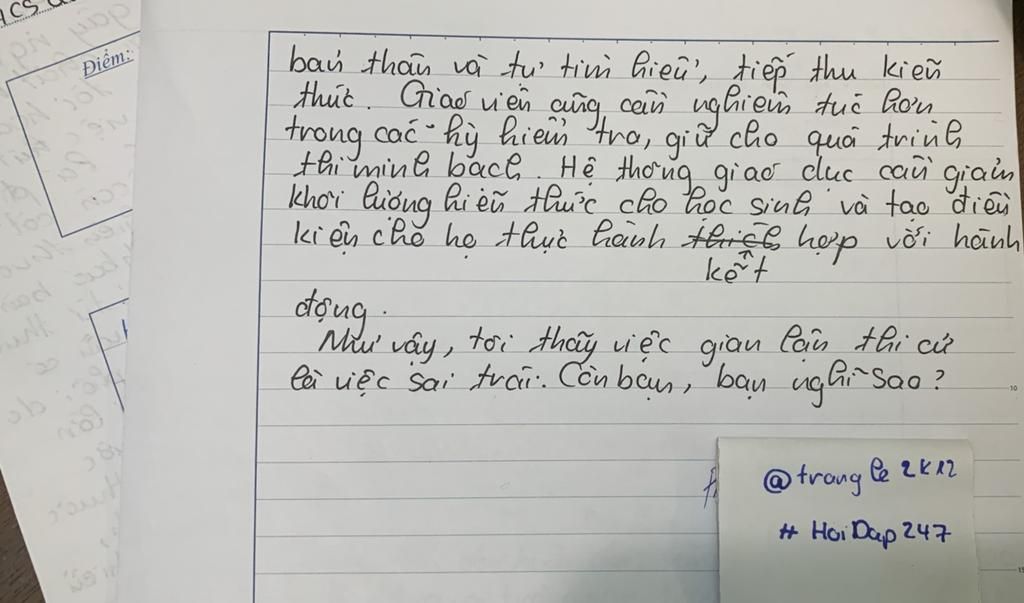 ACS
Điểm:
bản thân và tự tìm hiểu, tiếp thu kiến
thức. Giáo viên cũng cần nghiêm túc hơn
trong các kỳ kiểm tra, giữ cho quá trình
thi minh bạch. Hệ thống giáo dục cần giảm
khối lượng kiến thức cho học sinh và tạo điều
kiện cho họ thực hành thích hợp với hành
kết
động.
Như vậy, tôi thấy việc gian lận thi cử
là việc sai trái. Còn bạn, bạn nghĩ sao?
10
@trang le 2k12
# HoiDap247
15